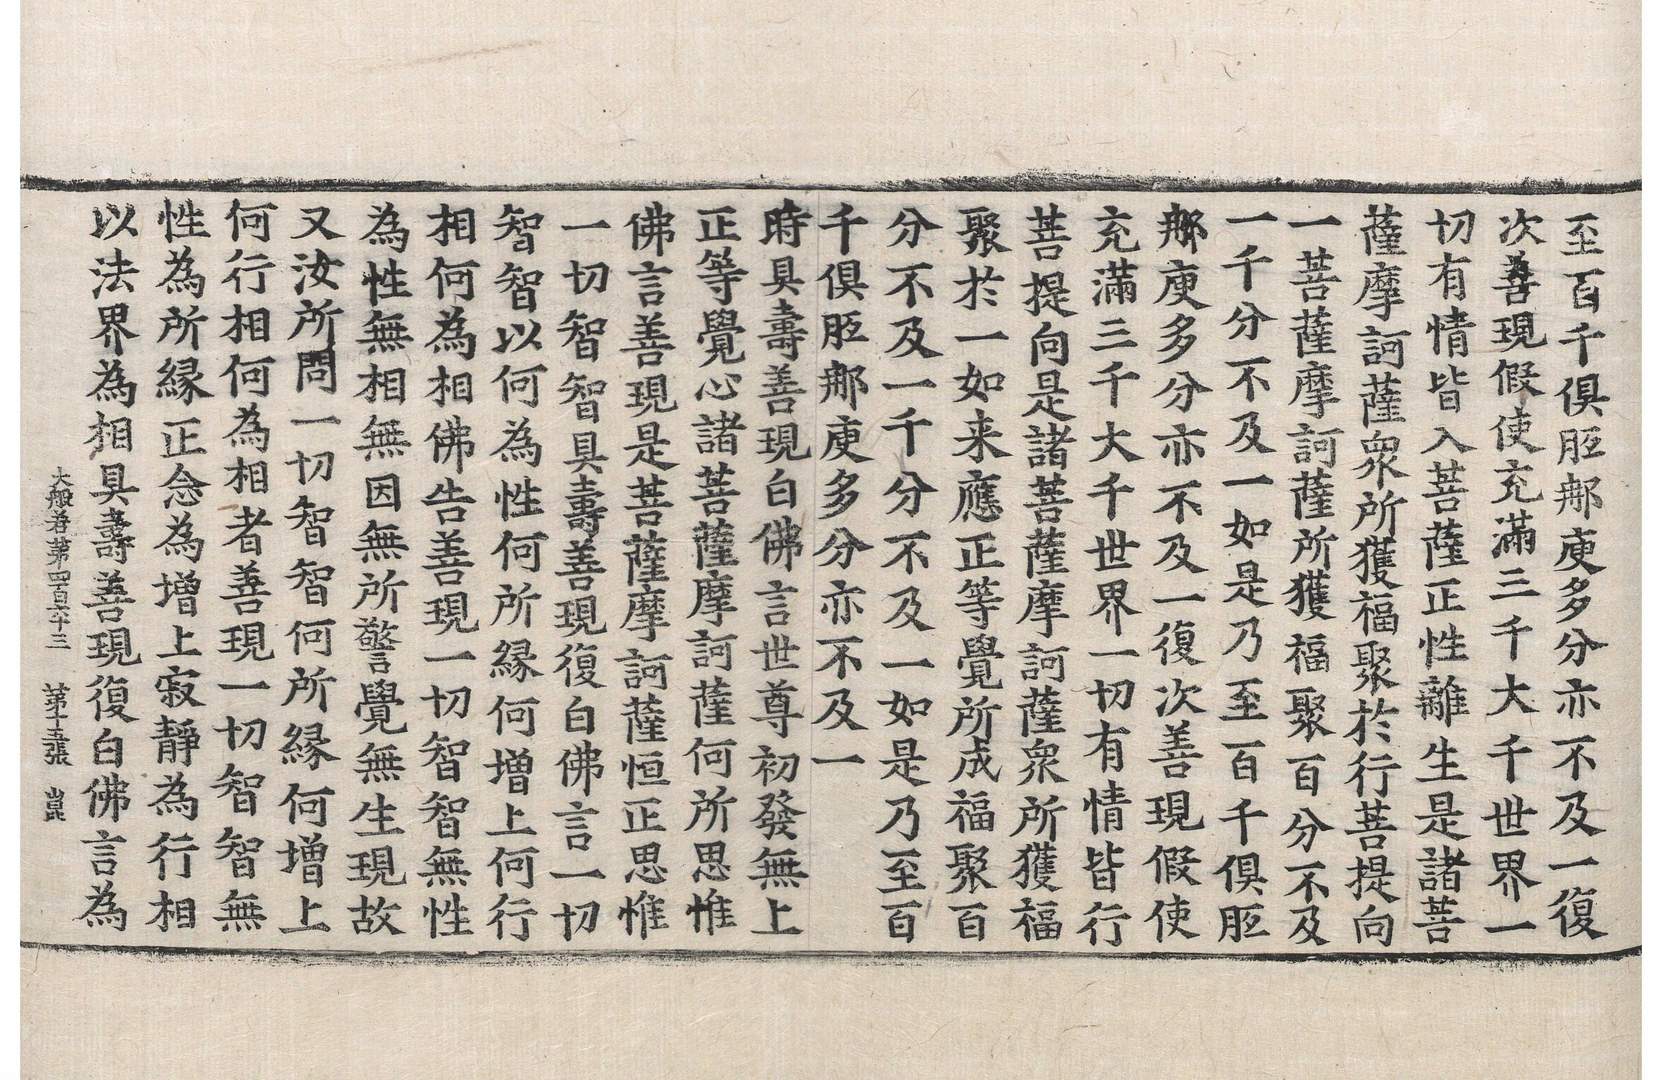 至百千俱胝那庾多分亦不及一復
次善現假使充滿三千大千世界一
切有情皆入菩薩正性離生是諸菩
薩摩訶薩衆所獲福聚於行菩提向
一菩薩摩訶薩所獲福聚百分不及
一千分不及一如是乃至百千俱胝
那庾多分亦不及一復次善現假使
充滿三千大千世界一切有情皆行
菩提向是諸菩薩摩訶薩衆所獲福
聚於一如来應正等覺所成福聚百
分不及一千分不及一如是乃至百
千俱胝那庾多分亦不及一
時具壽善現白佛言世尊初發無上
正等覺心諸菩薩摩訶薩何所思惟
佛言善現是菩薩摩訶薩恒正思惟
一切智智具壽善現復白佛言一切
智智以何為性何所縁何增上何行
相何為相佛告善現一切智智無性
為性無相無因無所警覺無生現故
又汝所問一切智智何所縁何增上
何行相何為相者善現一切智智無
性為所縁正念為增上寂靜為行相
以法界為相具壽善現復白佛言為
大般若第四百六十三　第十五張　崑